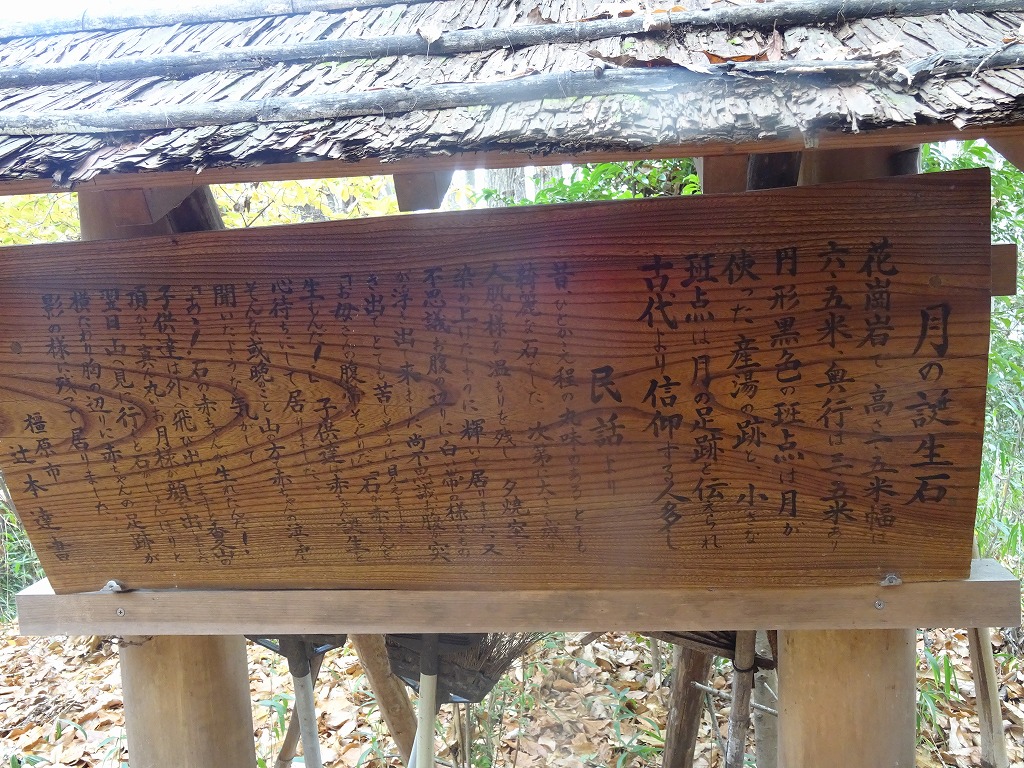 月の誕生石
花崗岩で高さ一・五米幅は
六・五米、奥行は三・五米あり
円形黒色の斑点は月が
使った産湯の跡と、小さな
斑点は月の足跡と伝えられ
古代より信仰する人多し
民話より
昔、ひとかかえ程の丸味
綺麗な石でした、次第に大きく
人肌の様な温もりを残し 夕焼空を
染め上げたように輝いて居りました、又
不思議なお腹の辺りに白い帯の様なもの
が浮き出て来ました、尚不思議
き出してとても苦しそうに見えました
「お母さんの腹にそっくりだ、石の赤ちゃん
生むんだ!」子供達は赤ちゃん誕生を
心待ちにして居りました、
そんな或晩のこと山の方で赤ちゃんの泣声
聞いたような気がして
「あっ!石の赤ちゃんが生れたんだ!」
子供達は外へ飛び出しました 香山の
頂から真ん丸いお月様が顔を出し
翌日山へ見に行くと石
横たわり胸の辺りに赤ちゃんの足跡が
影の様に残って居りました、
橿原市
辻本